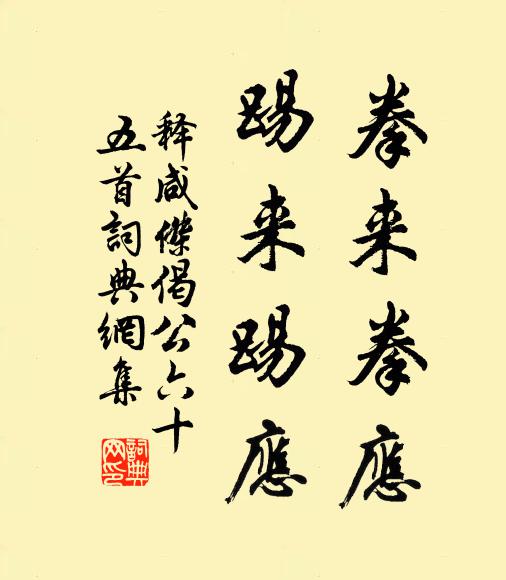 拳来拳應
踢来踢應
释咸傑偈公六十
五首詞典網集
詞典网印